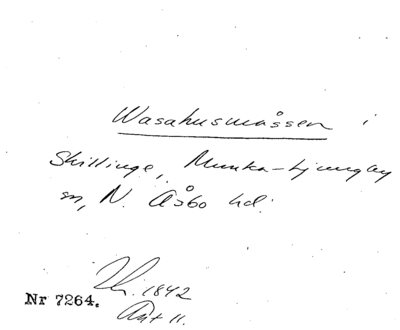 Wasahusmåssen i
Skillinge, Munka-Ljungby
sn, N. Åsbo hd.
1842
Nr 7264.
Akt 11.